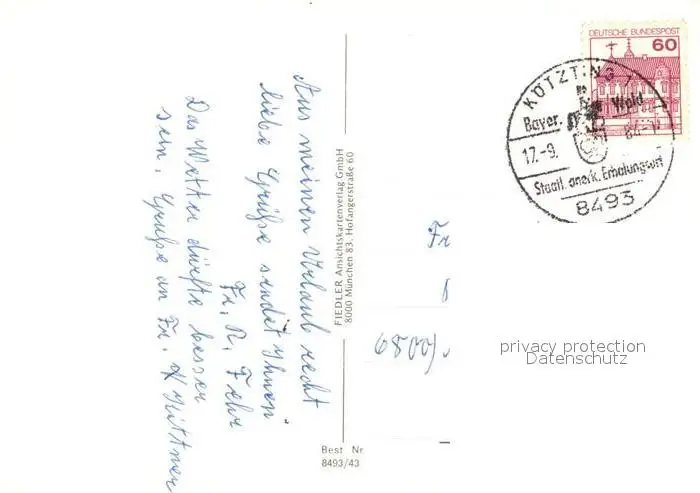 Aus meinen Urlaub recht
liebe Grüße sendet Ihnen
Fr. R. Fehr
Das Wetter dürfte besser
sein, Grüße an Fr.
FIEDLER Ansichtskartenverlag GmbH
8000 München 83. Hofangerstraße 60
Best Nr
8493/43
DEUTSCHE BUNDESPOST
60
KÖTZTING 1
Bayer. Wald
17.-9. 84
Staatl. anerk. Erholungsort
8493
Fr
6800/
privacy protection
Datenschutz